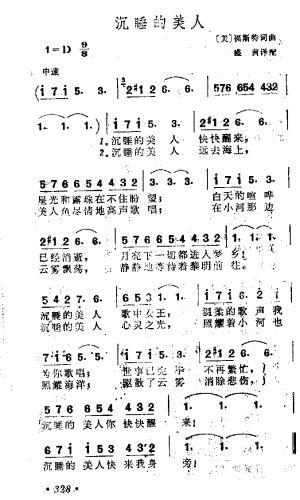 沉睡的美人
〔美〕福斯特词曲
1=D 9/8
盛茵译配
中速
(i 7 i 5. 3. 2 #1 2 6. 6. 576 654 432
1. 1. 1.)
i 7 i 5. 3. 2 #1 2 6. 6.
1.沉睡的美人 快快醒来,
2.沉睡的美人 远去海上,
5 7 6 6 5 4 4 3 2 1. 1.
星光和露珠在不住盼望;
白天的喧哗
美人鱼尽情地高声歌唱;
在小河那边
2 #1 2 6. 6. 5 7 6 6 5 4 4 3 2 1. 1.
已经消逝, 月亮下一切都进入梦乡;
云雾飘荡, 静静地等待着黎明前往。
5 4 2 7. 6. 6 5 3 1. 1.
沉睡的美人 歌中女王, 温柔的歌声我
沉睡的美人 心灵之光, 照耀着小河也
为你歌唱; 世事已完毕 不再繁忙;
照耀海洋; 驱散了云雾 消除悲伤;
5 7 6 6 5 4 4 3 2 1. 1. 1. 1.
沉睡的美人你快快醒 来!
6 7 i i 5 3 4 3 2 1. 1. 1. 1.
沉睡的美人快来我身 旁!
·328·